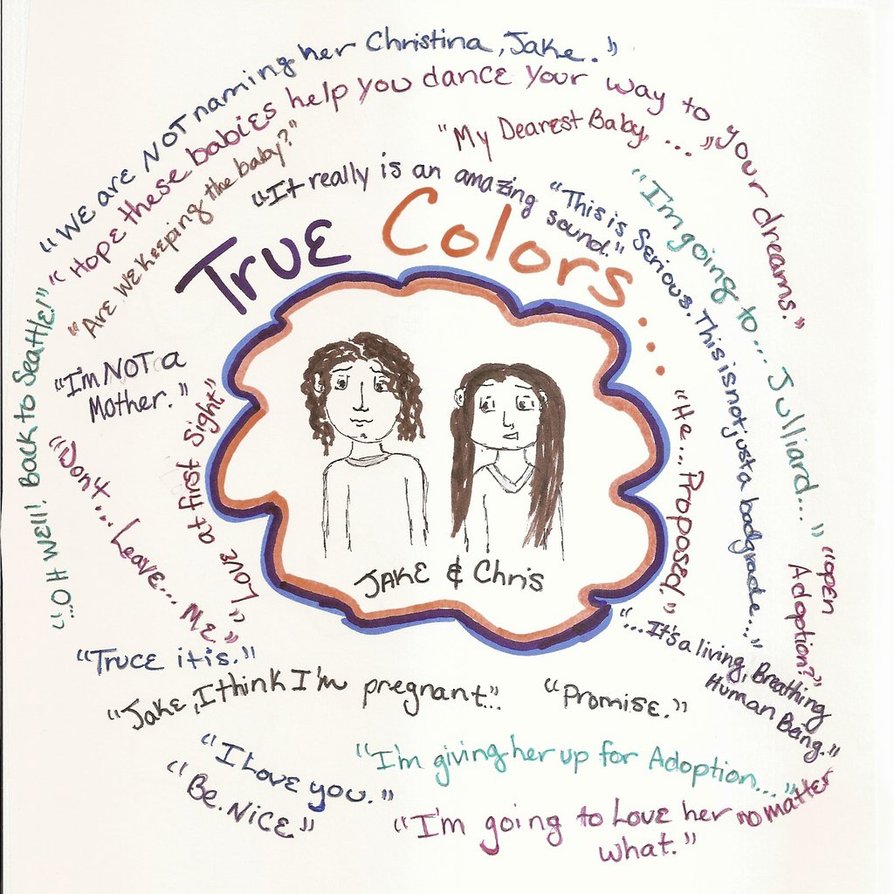 "We are NOT naming her Christina, Jake."
"Hope these babies help you dance your way to your dreams."
"Are we keeping the baby?"
"My Dearest Baby, ..."
"It really is an amazing sound."
"This is Serious. This is not just a bad grade..."
"I'm going to... Julliard..."
True Colors....
"...OH Well! Back to Seattle!"
"I'm NOT a
Mother."
"Don't... Leave... Me"
"Love at first sight"
"He... Proposed."
"open
Adoption?"
JAKE & Chris
"...It's a living, Breathing
Human Being."
"Truce it is."
"Jake, I think I'm pregnant..."
"Promise."
"I Love you."
"Be. Nice"
"I'm giving her up for Adoption..."
"I'm going to Love her no matter
what."